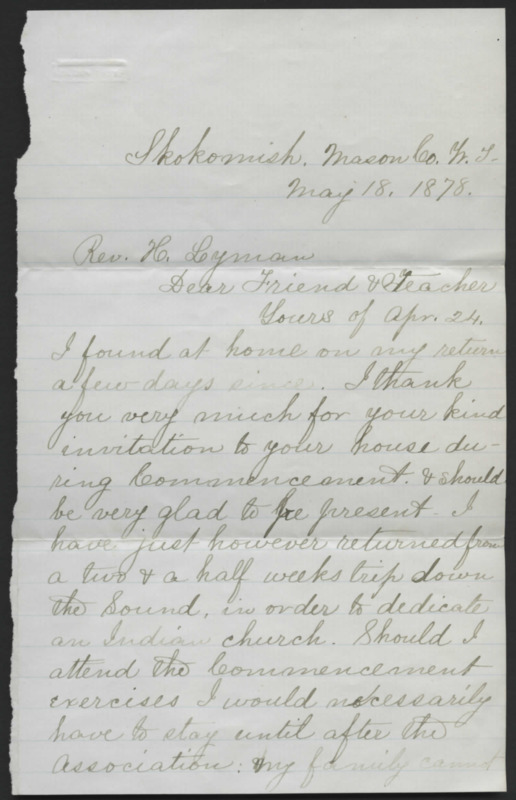 Skokomish. Mason Co. W. T.
May 18. 1878.
Rev. H. Lyman
Dear Friend & Teacher
Yours of Apr. 24.
I found at home on my return
a few days since. I thank
you very much for your kind
invitation to your house du-
ring Commencement. & should
be very glad to be present. I
have just however returned from
a two & a half weeks trip down
the Sound, in order to dedicate
an Indian church. Should I
attend the Commencement
exercises I would necessarily
have to stay until after the
Association: my family cannot